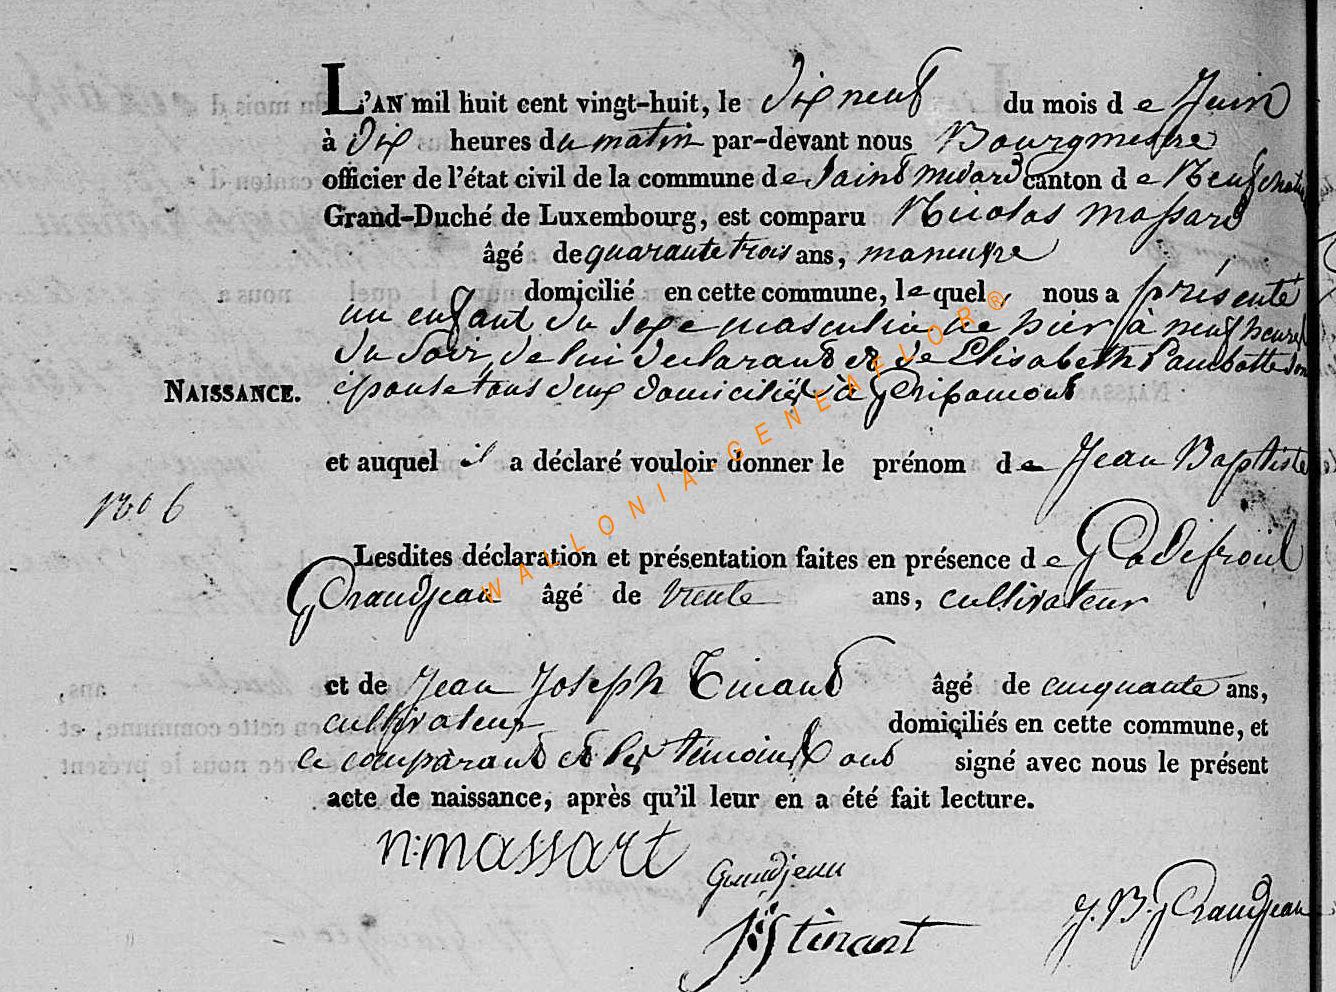 L'AN mil huit cent vingt-huit, le dix neuf du mois de Juin
à dix heures du matin par-devant nous Bourgmestre
officier de l'état civil de la commune de Saint médard canton de Neufchateau
Grand-Duché de Luxembourg, est comparu Nicolas massard
âgé de quarante trois ans, maneuvre
domicilié en cette commune, lequel, nous a présenté
un enfant du sexe masculin né hier à neuf heures
du soir, de lui declarant et de Elisabeth Pambotte son
NAISSANCE. épouse tous deux domiciliés à Gripamont
et auquel il a déclaré vouloir donner le prénom de Jean Baptiste
1806
Lesdites déclaration et présentation faites en présence de Godefroid
Grandjean âgé de trente ans, cultivateur
et de Jean Joseph Tinant âgé de cinquante ans,
cultivateur domiciliés en cette commune, et
le comparant et les témoins ont signé avec nous le présent
acte de naissance, après qu'il leur en a été fait lecture.
n: massart
Grandjean
JJ Stinant
J. B. Grandjean
WALLONIA-GENEAFLOR®